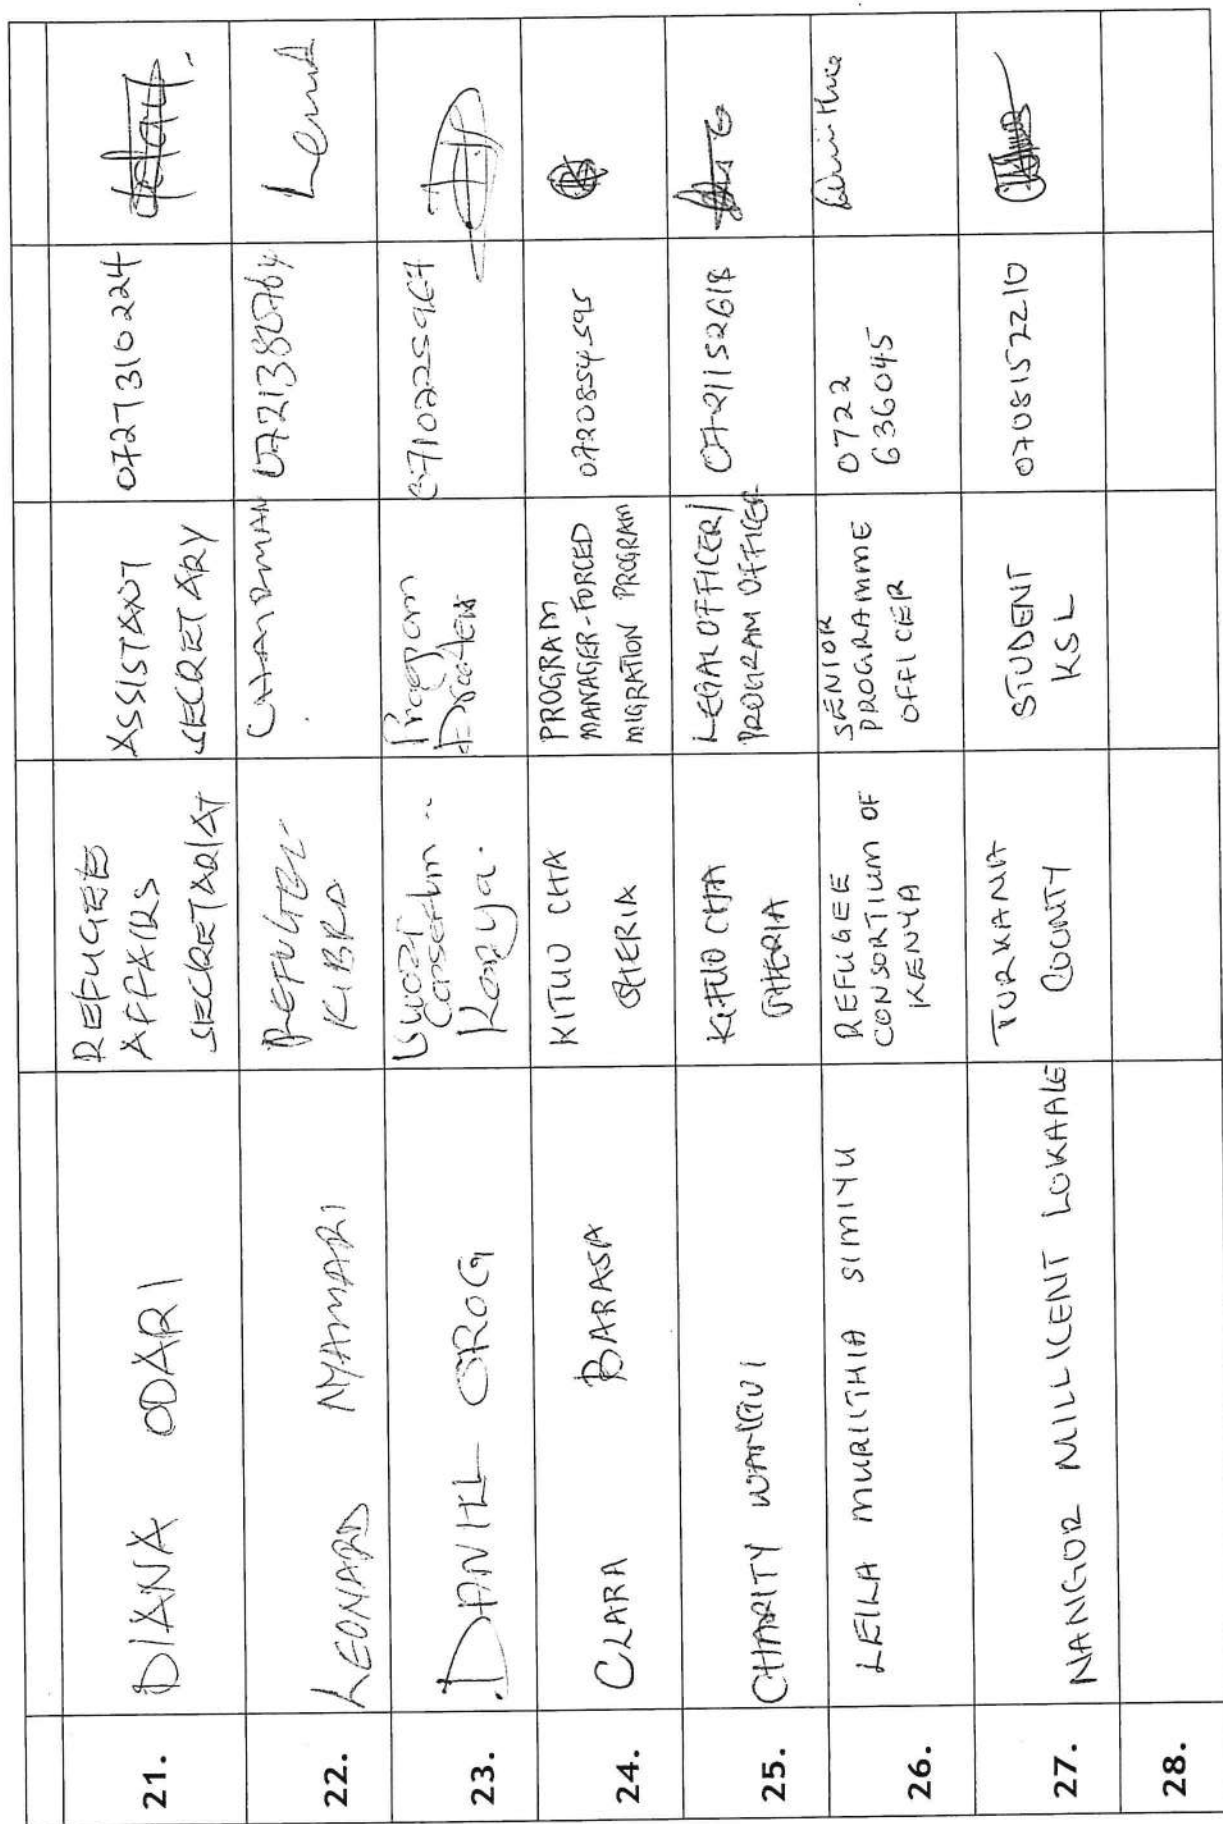 21.
DIANA ODARI
REFUGEE
AFFAIRS
SECRETARIAT
ASSISTANT
SECRETARY
0727310224
22.
LEONARD NYAMARI
REFUGEE
KIBRA
CHAIRMAN
23.
DANIEL OROG
Consortium
Kenya.
Program
24.
CLARA BARASA
KITUO CHA
SHERIA
PROGRAM
MANAGER-FORCED
MIGRATION PROGRAM
0720854595
25.
CHARITY WANGUI
KITUO CHA
SHERIA
LEGAL OFFICER/
PROGRAM OFFICER
0721152618
26.
LEILA MURIITHIA SIMIYU
REFUGEE
CONSORTIUM OF
KENYA
SENIOR
PROGRAMME
OFFICER
0722
636045
27.
NANGOR MILLICENT LOKAALE
TURKANA
COUNTY
STUDENT
KSL
0708152210
28.